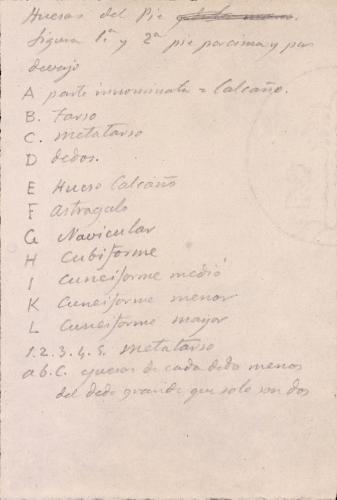 Huesos del Pie
figura 1.ª y 2ª pie por cima y por
devajo
A parte innominata = Calcaño.
B. Tarso
C. Metatarso
D dedos.
E Hueso Calcaño
F Astragalo
G Navicular
H Cubiforme
I Cuneiforme medio
K Cuneiforme menor
L Cuneiforme mayor
1.2.3.4.5. Metatarso
a b. C. guesos de cada dedo menos
del dedo grande que solo son dos